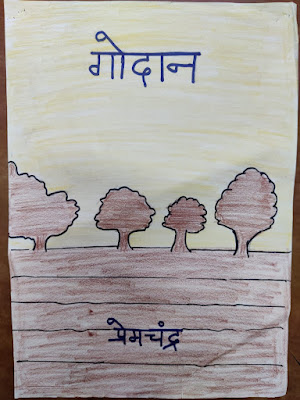 गोदान
प्रेमचंद्र